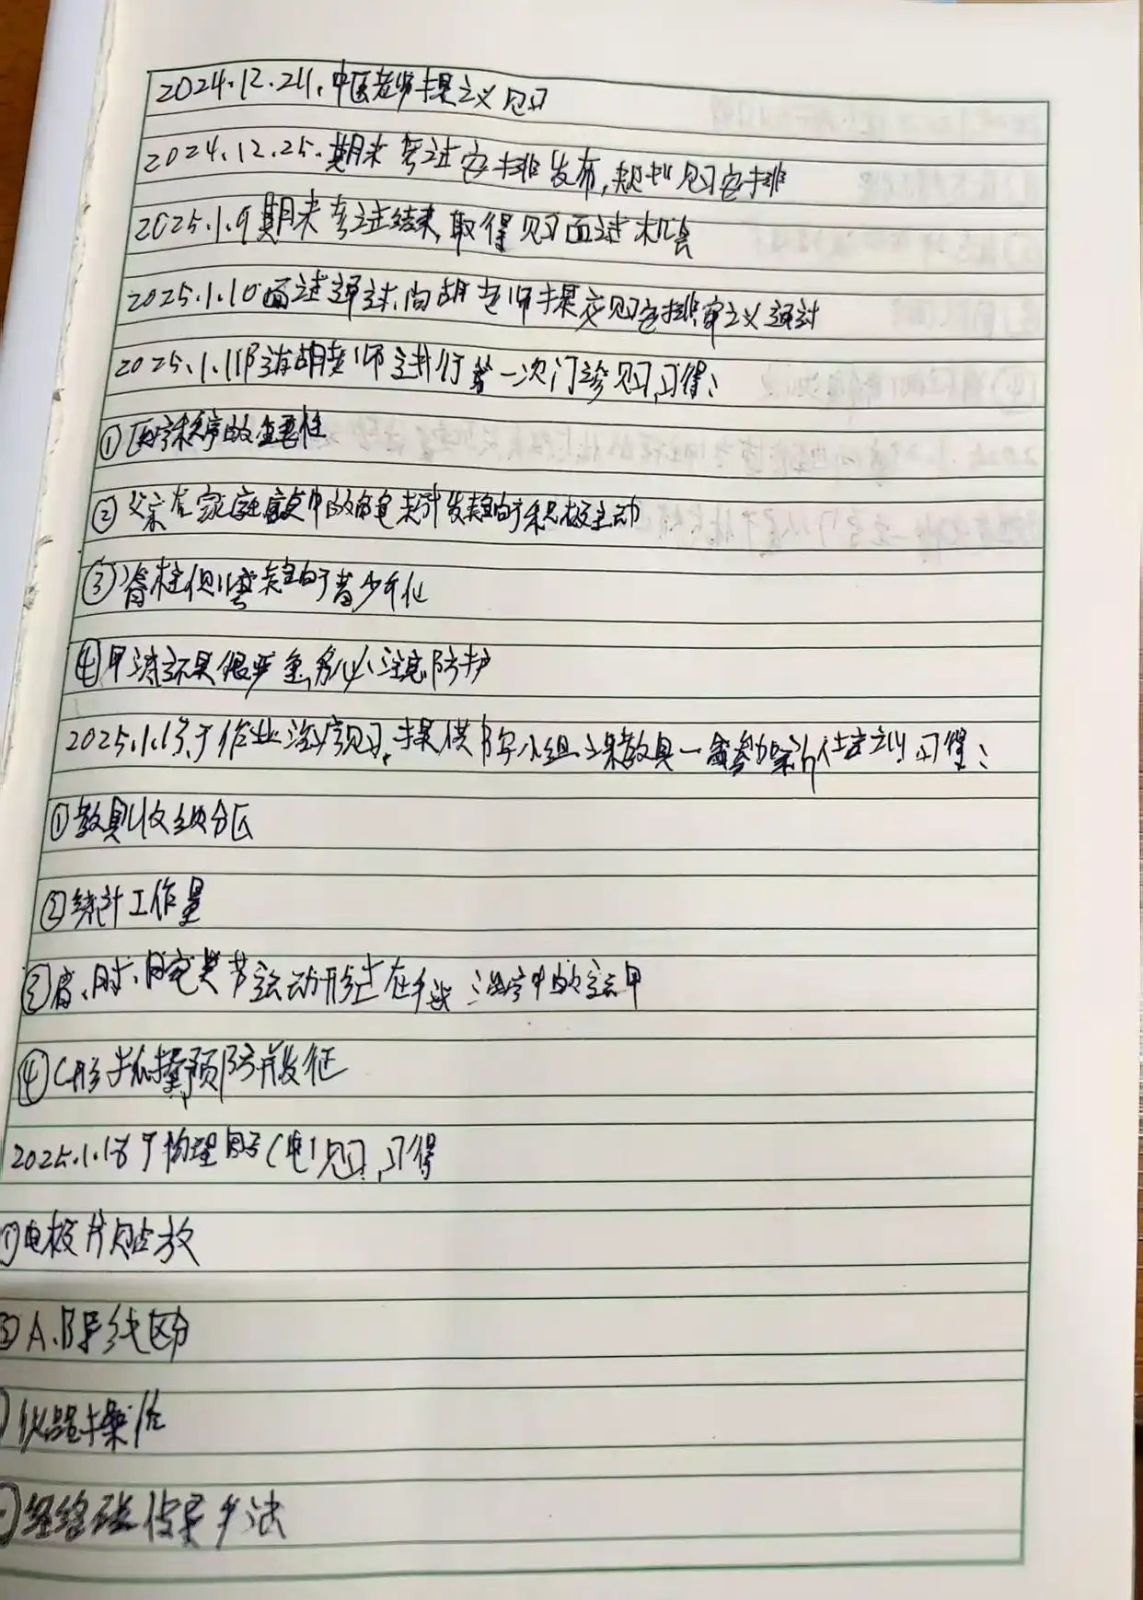 2024.12.24.中医老师提议见习
2024.12.25.期末考试安排发布,规划见习安排
2025.1.9期末考试结束,取得见习面试机会
2025.1.10面试通过,向胡老师提交见习安排审议通过
2025.1.11邀请胡老师进行第一次门诊见习,习得:
①医疗秩序的重要性
②父亲在家庭 中的角色 积极主动
③脊柱侧弯 青少年化
④甲流 很严重,务必注意防护
2025.1.13于作业治疗见习,提供 小组课教具一 ,习得:
①教具收纳分区
②统计工作量
③肩、肘、腕关节运动形式在手法治疗中的运用
④C形抓握预防并发征
2025.1.16于物理因子(电)见习,习得
①电极片贴放
②A.B导线区分
仪器操作
经络 传导手法